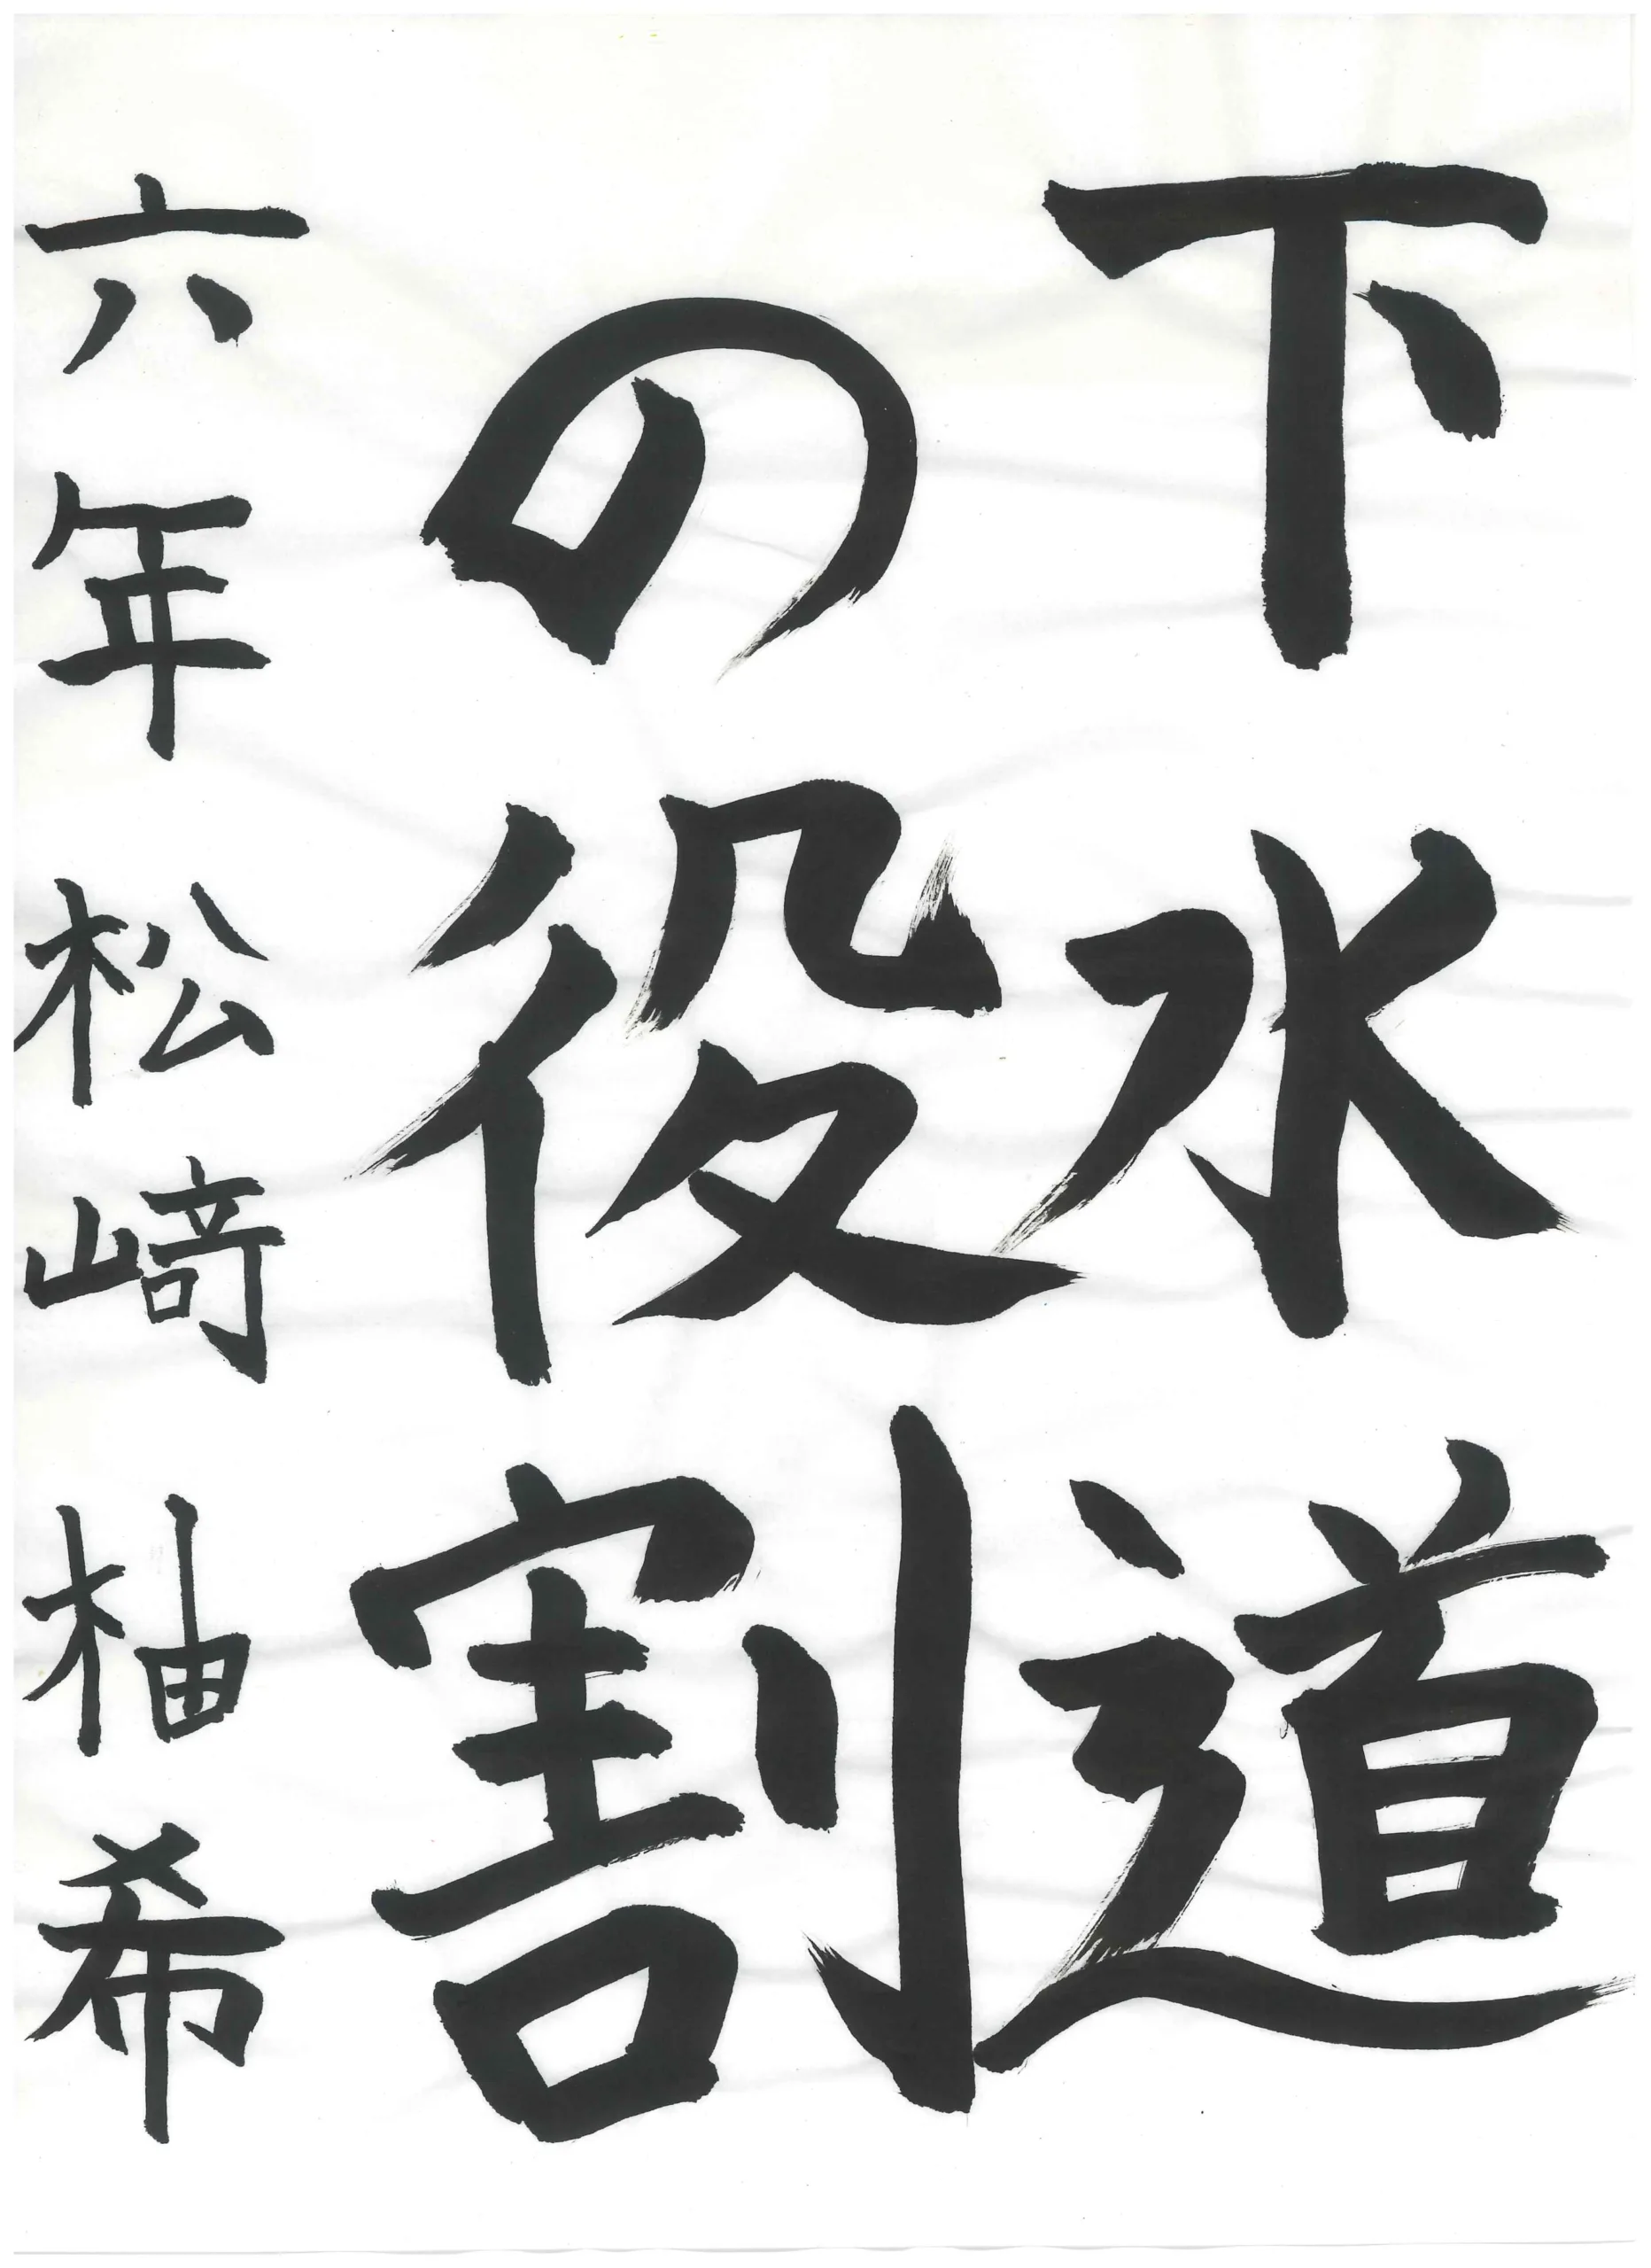 下水道
の役割
六年 松﨑 柚希